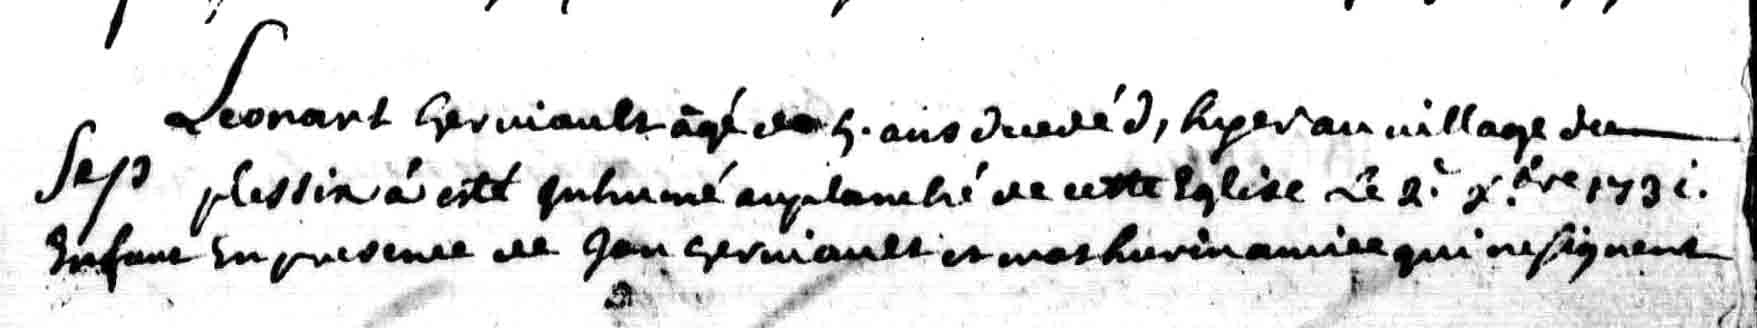 Leonart Gerviault âgé de 5. ans decedé d, hyer au village du
Sep plessix á esté Inhumé au planché de cette Eglise Le 2.e x.bre 1731.
Enfant En presence de Jan Gerviault et mathurin amice qui ne signent